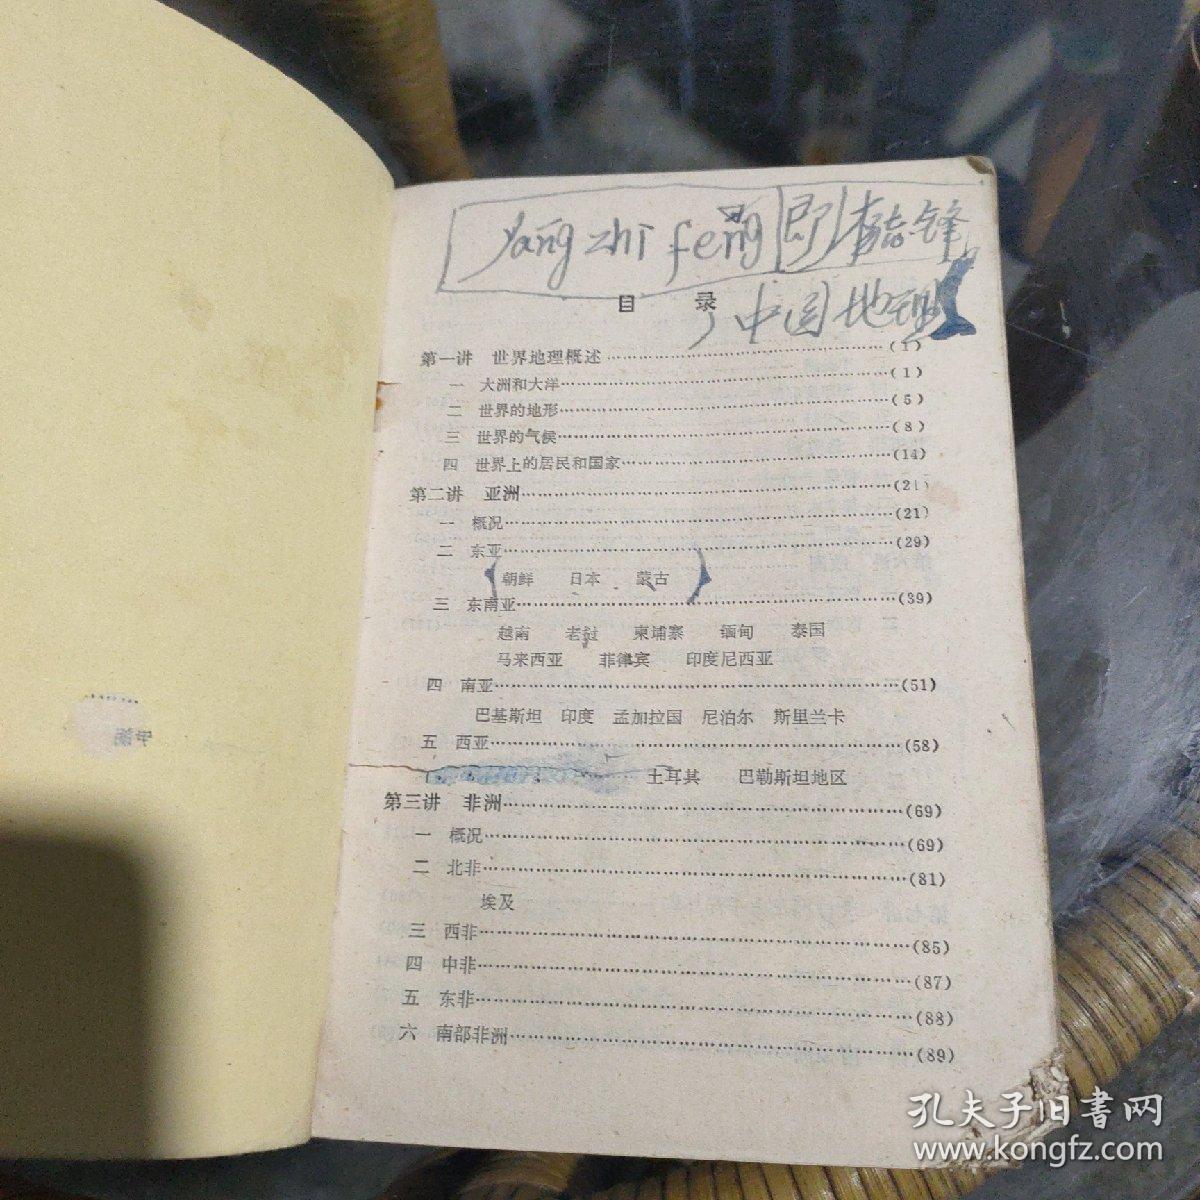 yang zhi feng 即 杨志锋
中国地理
目 录
第一讲 世界地理概述……(1)
一 大洲和大洋……(1)
二 世界的地形……(5)
三 世界的气候……(8)
四 世界上的居民和国家……(14)
第二讲 亚洲……(21)
一 概况……(21)
二 东亚……(29)
朝鲜 日本 蒙古
三 东南亚……(39)
越南 老挝 柬埔寨 缅甸 泰国
马来西亚 菲律宾 印度尼西亚
四 南亚……(51)
巴基斯坦 印度 孟加拉国 尼泊尔 斯里兰卡
五 西亚……(58)
土耳其 巴勒斯坦地区
第三讲 非洲……(69)
一 概况……(69)
二 北非……(81)
埃及
三 西非……(85)
四 中非……(87)
五 东非……(88)
六 南部非洲……(89)
孔夫子旧书网
www.kongfz.com